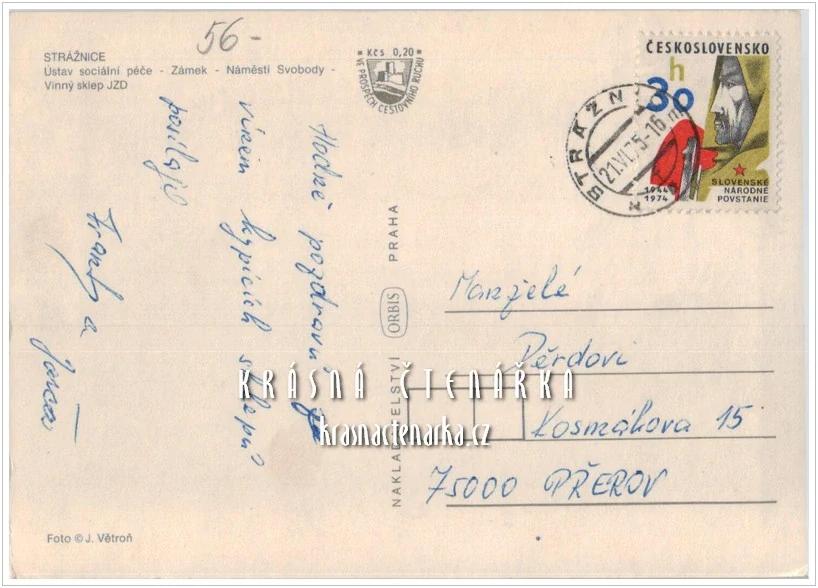 56-
STRÁŽNICE
Ústav sociální péče - Zámek - Náměstí Svobody -
Vinný sklep JZD
Kčs 0,20
VE PROSPĚCH CESTOVNÍHO RUCHU
ČESKOSLOVENSKO
h
30
1944
1974
SLOVENSKÉ
NÁRODNÉ
POVSTANIE
STRÁŽN
21.VI.75-16
Hodně pozdravů
vinných sklepů
posílají
a
NAKLADATELSTVÍ ORBIS PRAHA
Manželé
Děrdovi
Kosmákova 15
75000 PŘEROV
KRÁSNÁ ČTENÁŘKA
krasnactenarka.cz
Foto © J. Větroň